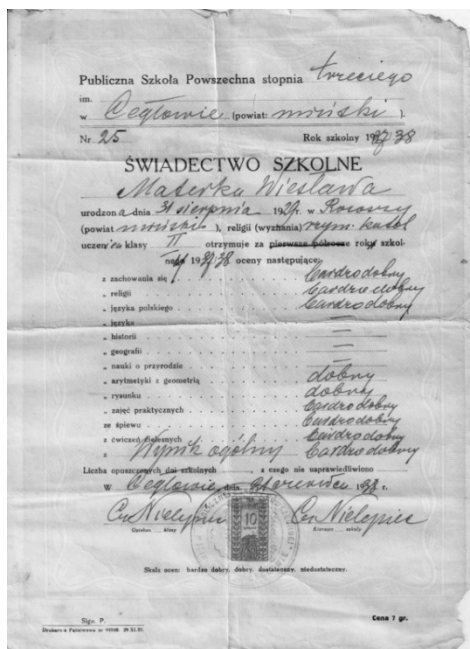 Publiczna Szkoła Powszechna stopnia trzeciego
im.
w Cegłowie (powiat: miński ).
Nr 25 Rok szkolny 1937/38
ŚWIADECTWO SZKOLNE
Materka Wiesława
urodzona dnia 31 sierpnia 1929 r. w
(powiat miński ), religii (wyznania) rzym. katol
uczenica klasy II otrzymuje za pierwsze półrocze roku szkol-
nego 1937/38 oceny następujące:
z zachowania się bardzo dobry
„ religii bardzo dobry
„ języka polskiego bardzo dobry
„ języka —
„ historii —
„ geografii —
„ nauki o przyrodzie —
„ arytmetyki z geometrią dobry
„ rysunku dobry
„ zajęć praktycznych bardzo dobry
ze śpiewu bardzo dobry
z ćwiczeń cielesnych bardzo dobry
z Wynik ogólny bardzo dobry
Liczba opuszczonych dni szkolnych , z czego nie usprawiedliwiono
W Cegłowie, dnia czerwca 1938 r.
Opiekun klasy Kierown. szkoły
10
Skala ocen: bardzo dobry, dobry, dostateczny, niedostateczny.
Sign. P. Cena 7 gr.